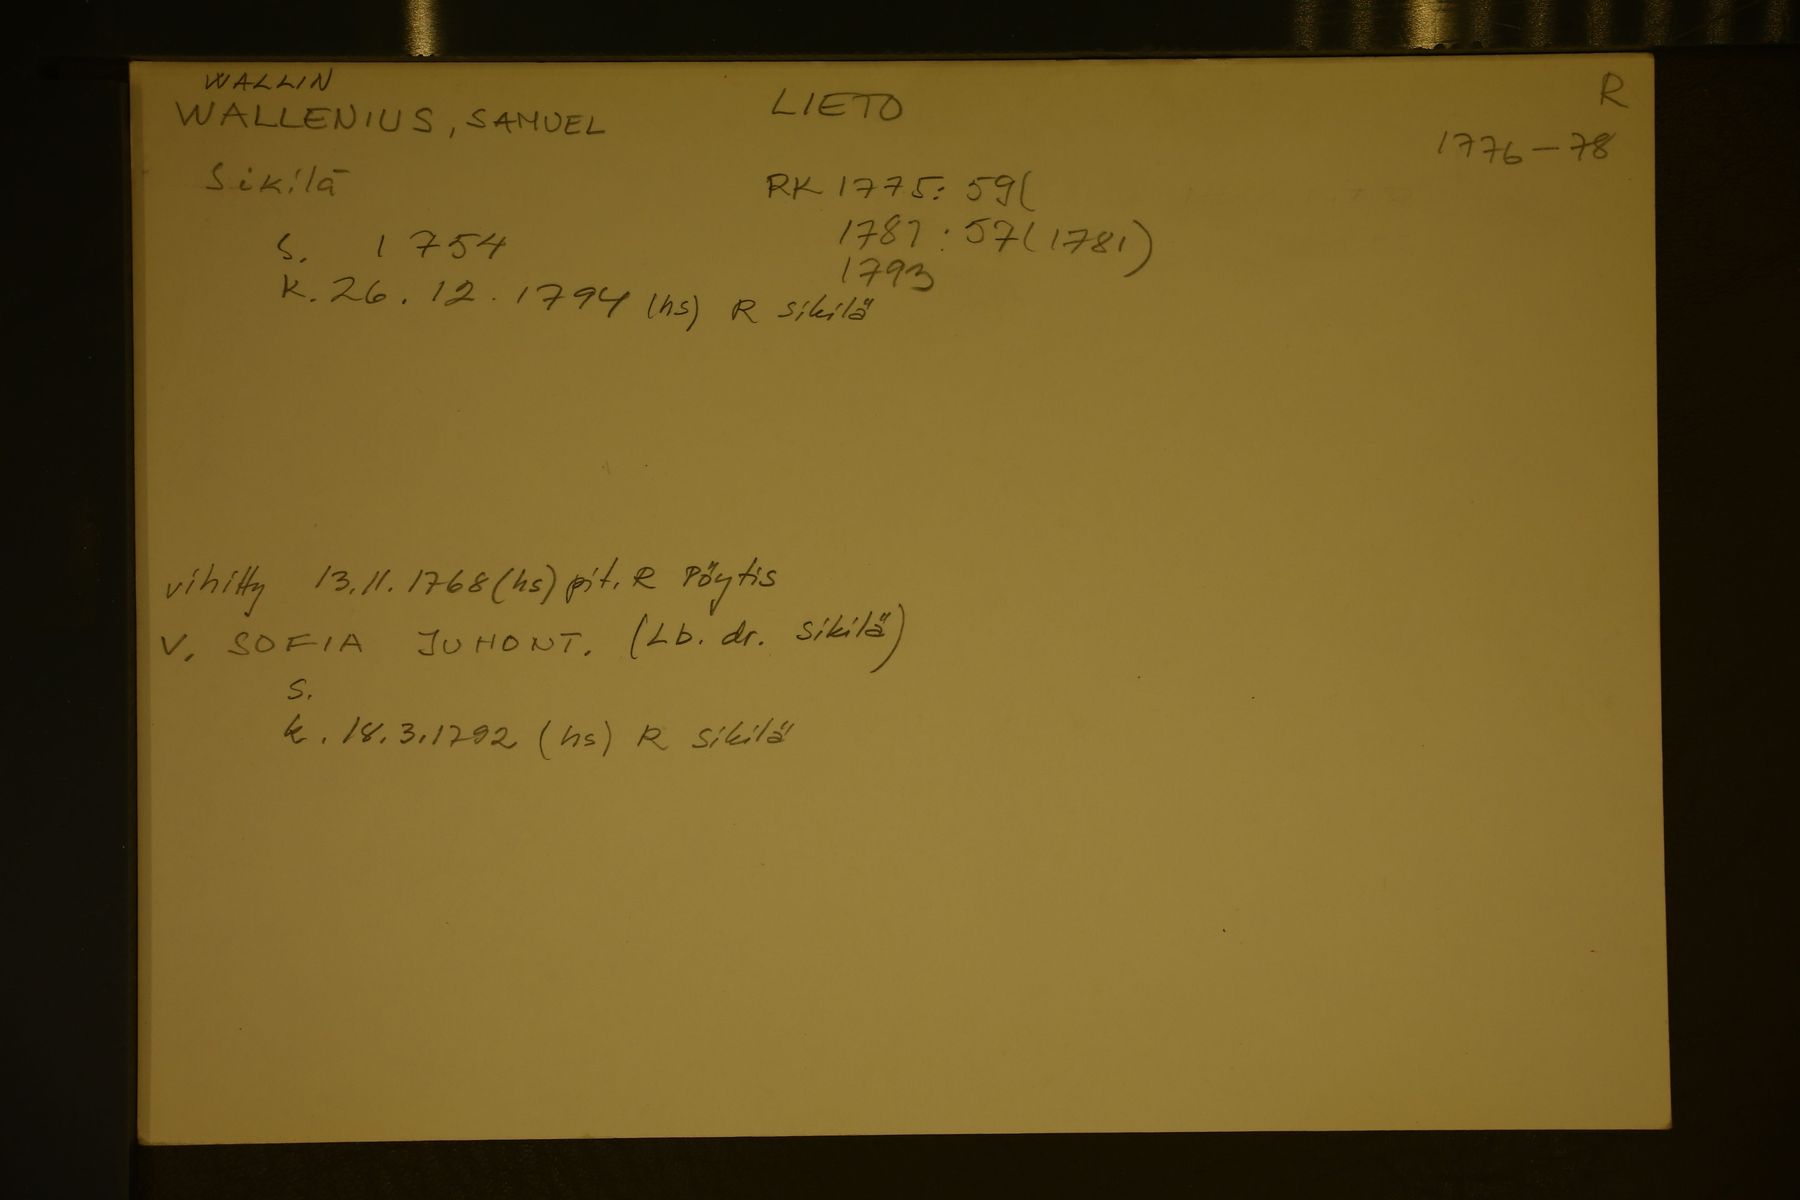 WALLIN
WALLENIUS, SAMUEL LIETO R
1776-78
Sikilä RK 1775: 59(
s. 1754 1787: 57(1781)
1793
k. 26.12.1794 (hs) R Sikilä
vihitty 13.11.1768 (hs) pit. R Pöytis
V. SOFIA JUHONT. (Lb. dr. Sikilä)
s.
k. 18.3.1792 (hs) R Sikilä